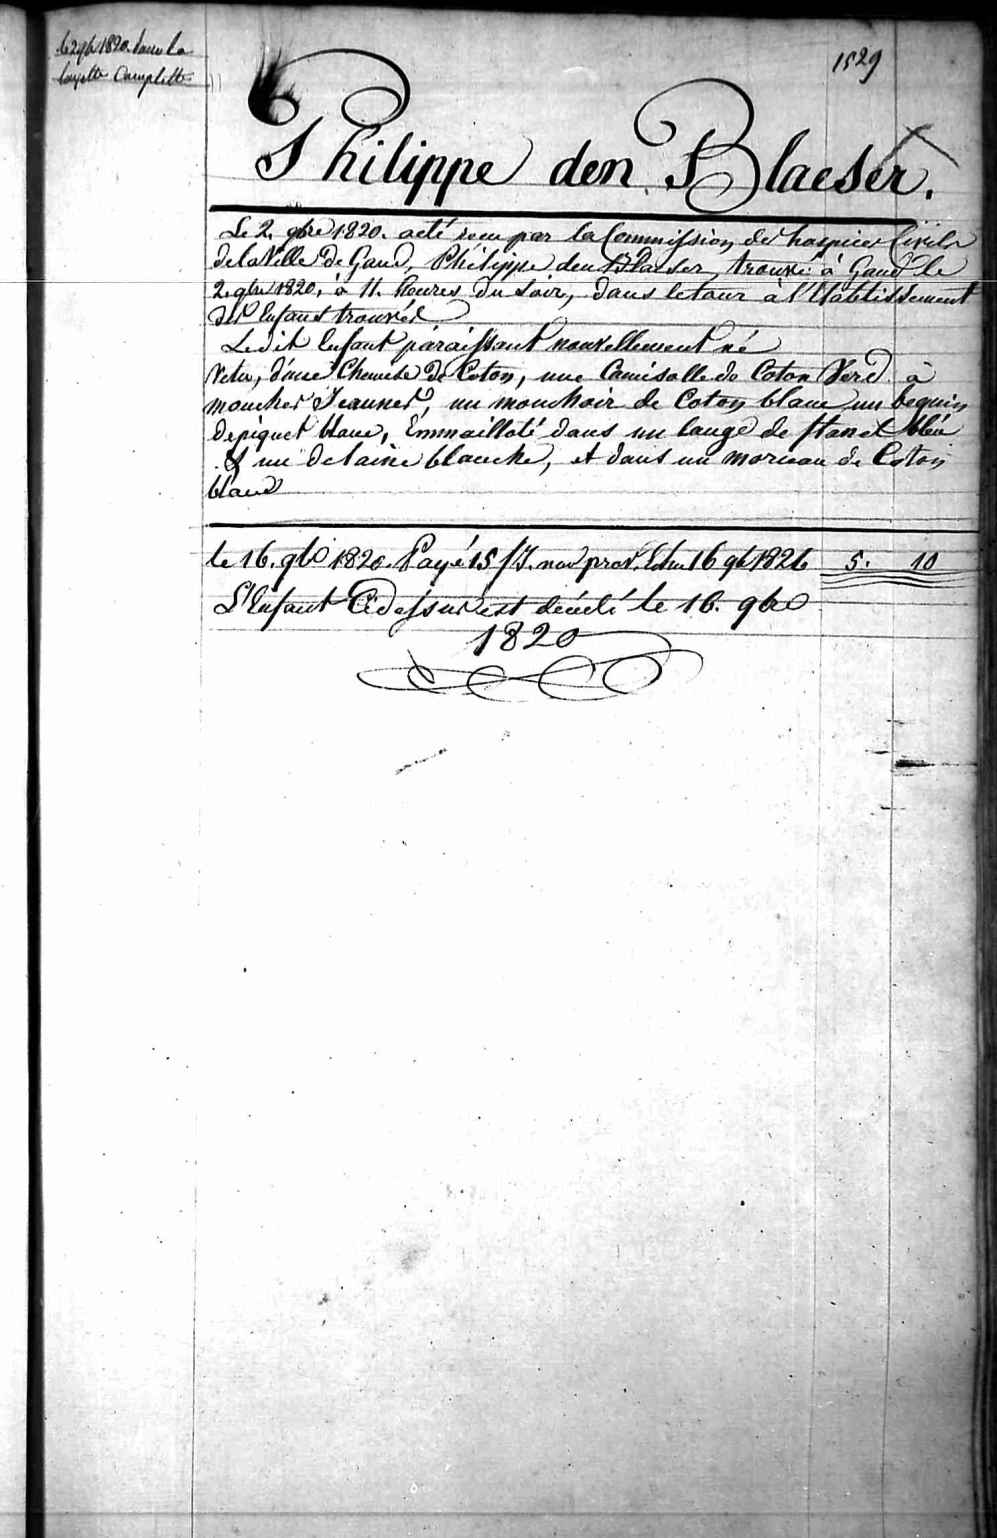 le 2 9b 1820. Donné la
layette Complette
1529
Philippe den Blaeser.
Le 2. 9bre 1820. a été recu par la Commission des hospices Civils
de la Ville de Gand, Philippe den Blaeser, trouvé à Gand le
2. 9bre 1820, à 11. heures du Soir, dans le tour à l'Etablissement
des Enfans trouvés
Ledit Enfant paraissant nouvellement né
Vetu, d'une Chemise de Coton, une Camisolle de Coton Verd à
mouches Jeaunes, un mouchoir de Coton blanc un beguin
de piquet blanc, Emmailloté dans un lange de flanel bleu
& un de laine blanche, et dans un morceau de Coton
blanc
le 16. 9b 1820. Payé 15 /J. nov prov. 16 9b 1820 5. 10
L'Enfant Cidessus est décédé le 16. 9bre
1820